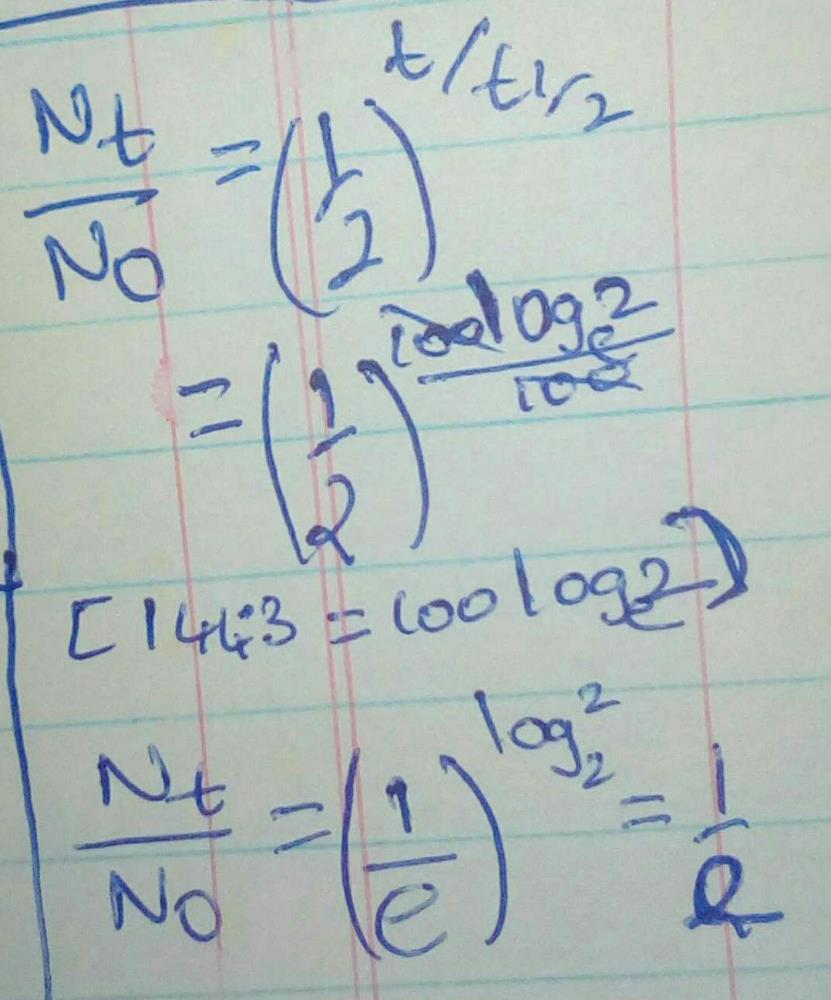 Nt/N0 = (1/2)^t/t1/2
= (1/2)^100loge2/100
[144.3 = 100 loge2)
Nt/N0 = (1/e)^log2 2 = 1/e